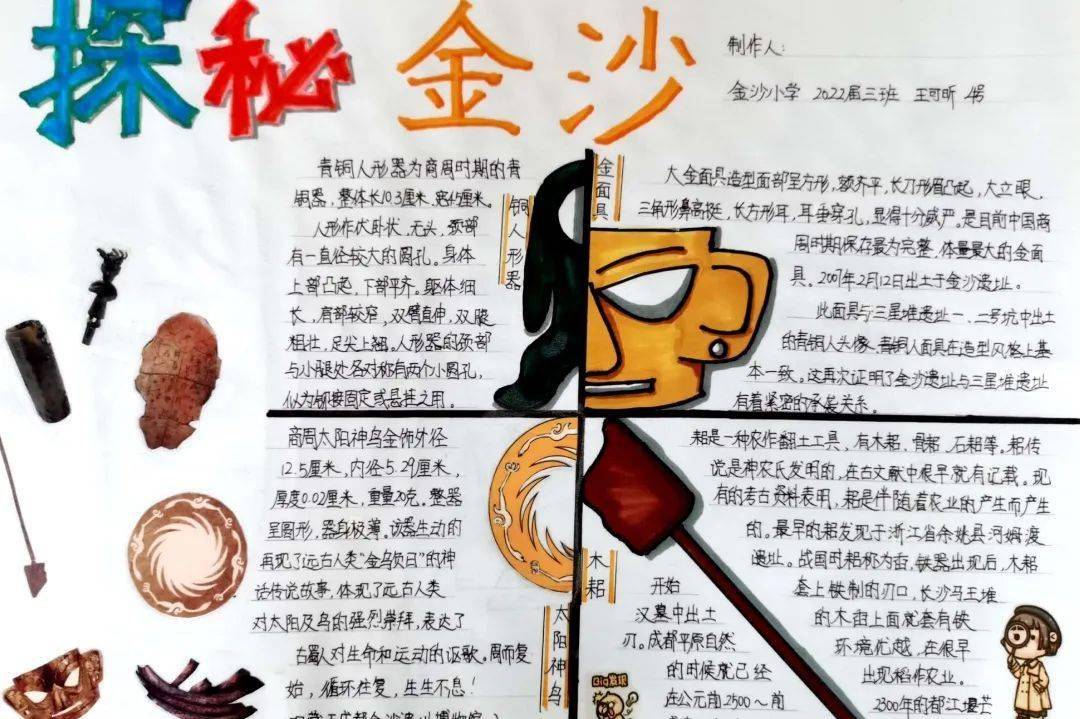 探秘金沙
制作人：
金沙小学 2022届三班 王可昕 4号
青铜人形器为商周时期的青
铜器，整体长10.3厘米，宽4.5厘米。
人形作伏卧状，无头，颈部
有一直径较大的圆孔。身体
上部凸起，下部平齐。躯体细
长，肩部较窄，双臂直伸，双腿
粗壮，足尖上翘。人形器的颈部
与小腿处各对称有两个小圆孔，
似为铆接固定或悬挂之用。
铜人形器
金面具
大金面具造型面部呈方形，额齐平，长刀形眉凸起，大立眼，
三角形鼻高挺，长方形耳，耳垂穿孔，显得十分威严。是目前中国商
周时期保存最为完整，体量最大的金面
具。2007年2月12日出土于金沙遗址。
此面具与三星堆遗址一、二号坑中出土
的青铜人头像、青铜人面具在造型风格上基
本一致。这再次证明了金沙遗址与三星堆遗址
有着紧密的承袭关系。
商周太阳神鸟金饰外径
12.5厘米，内径5.29厘米，
厚度0.02厘米，重量20克。整器
呈圆形，器身极薄。该器生动的
再现了远古人类“金乌负日”的神
话传说故事，体现了远古人类
对太阳及鸟的强烈崇拜，表达了
古蜀人对生命和运动的讴歌。周而复
始，循环往复，生生不息！
太阳神鸟
木耜
耜是一种农作翻土工具，有木耜、骨耜、石耜等。耜传
说是神农氏发明的，在古文献中很早就有记载。现
有的考古资料表明，耜是伴随着农业的产生而产生
的。最早的耜发现于浙江省余姚县河姆渡
遗址。战国时耜称为臿，铁器出现后，木耜
开始 套上铁制的刃口，长沙马王堆
汉墓中出土 的木臿上面就套有铁
刃。成都平原自然 环境优越，在很早
的时候就已经 出现稻作农业。
在公元前2500～前 2300年的都江堰芒
Big发现